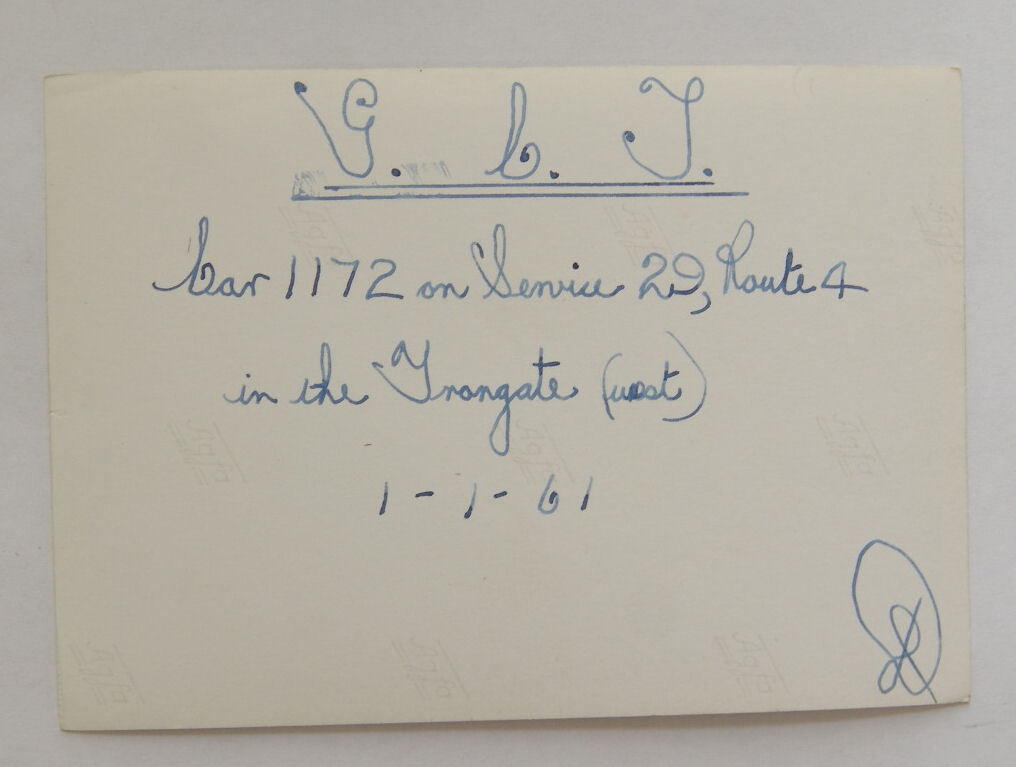 G. C. T.
Car 1172 on Service 29, Route 4
in the Trongate (west)
1-1-61